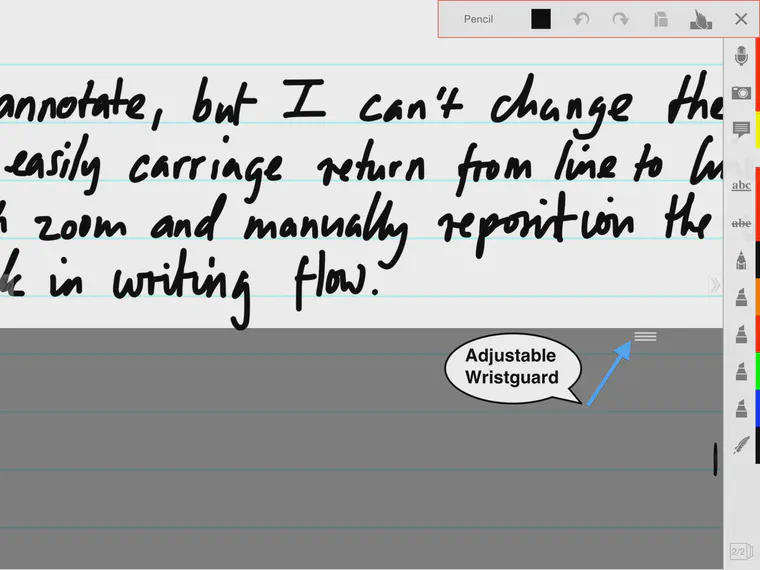 Pencil
annotate, but I can't change the
easily carriage return from line to
zoom and manually reposition the
in writing flow.
Adjustable
Wristguard
abc
abc
2/2